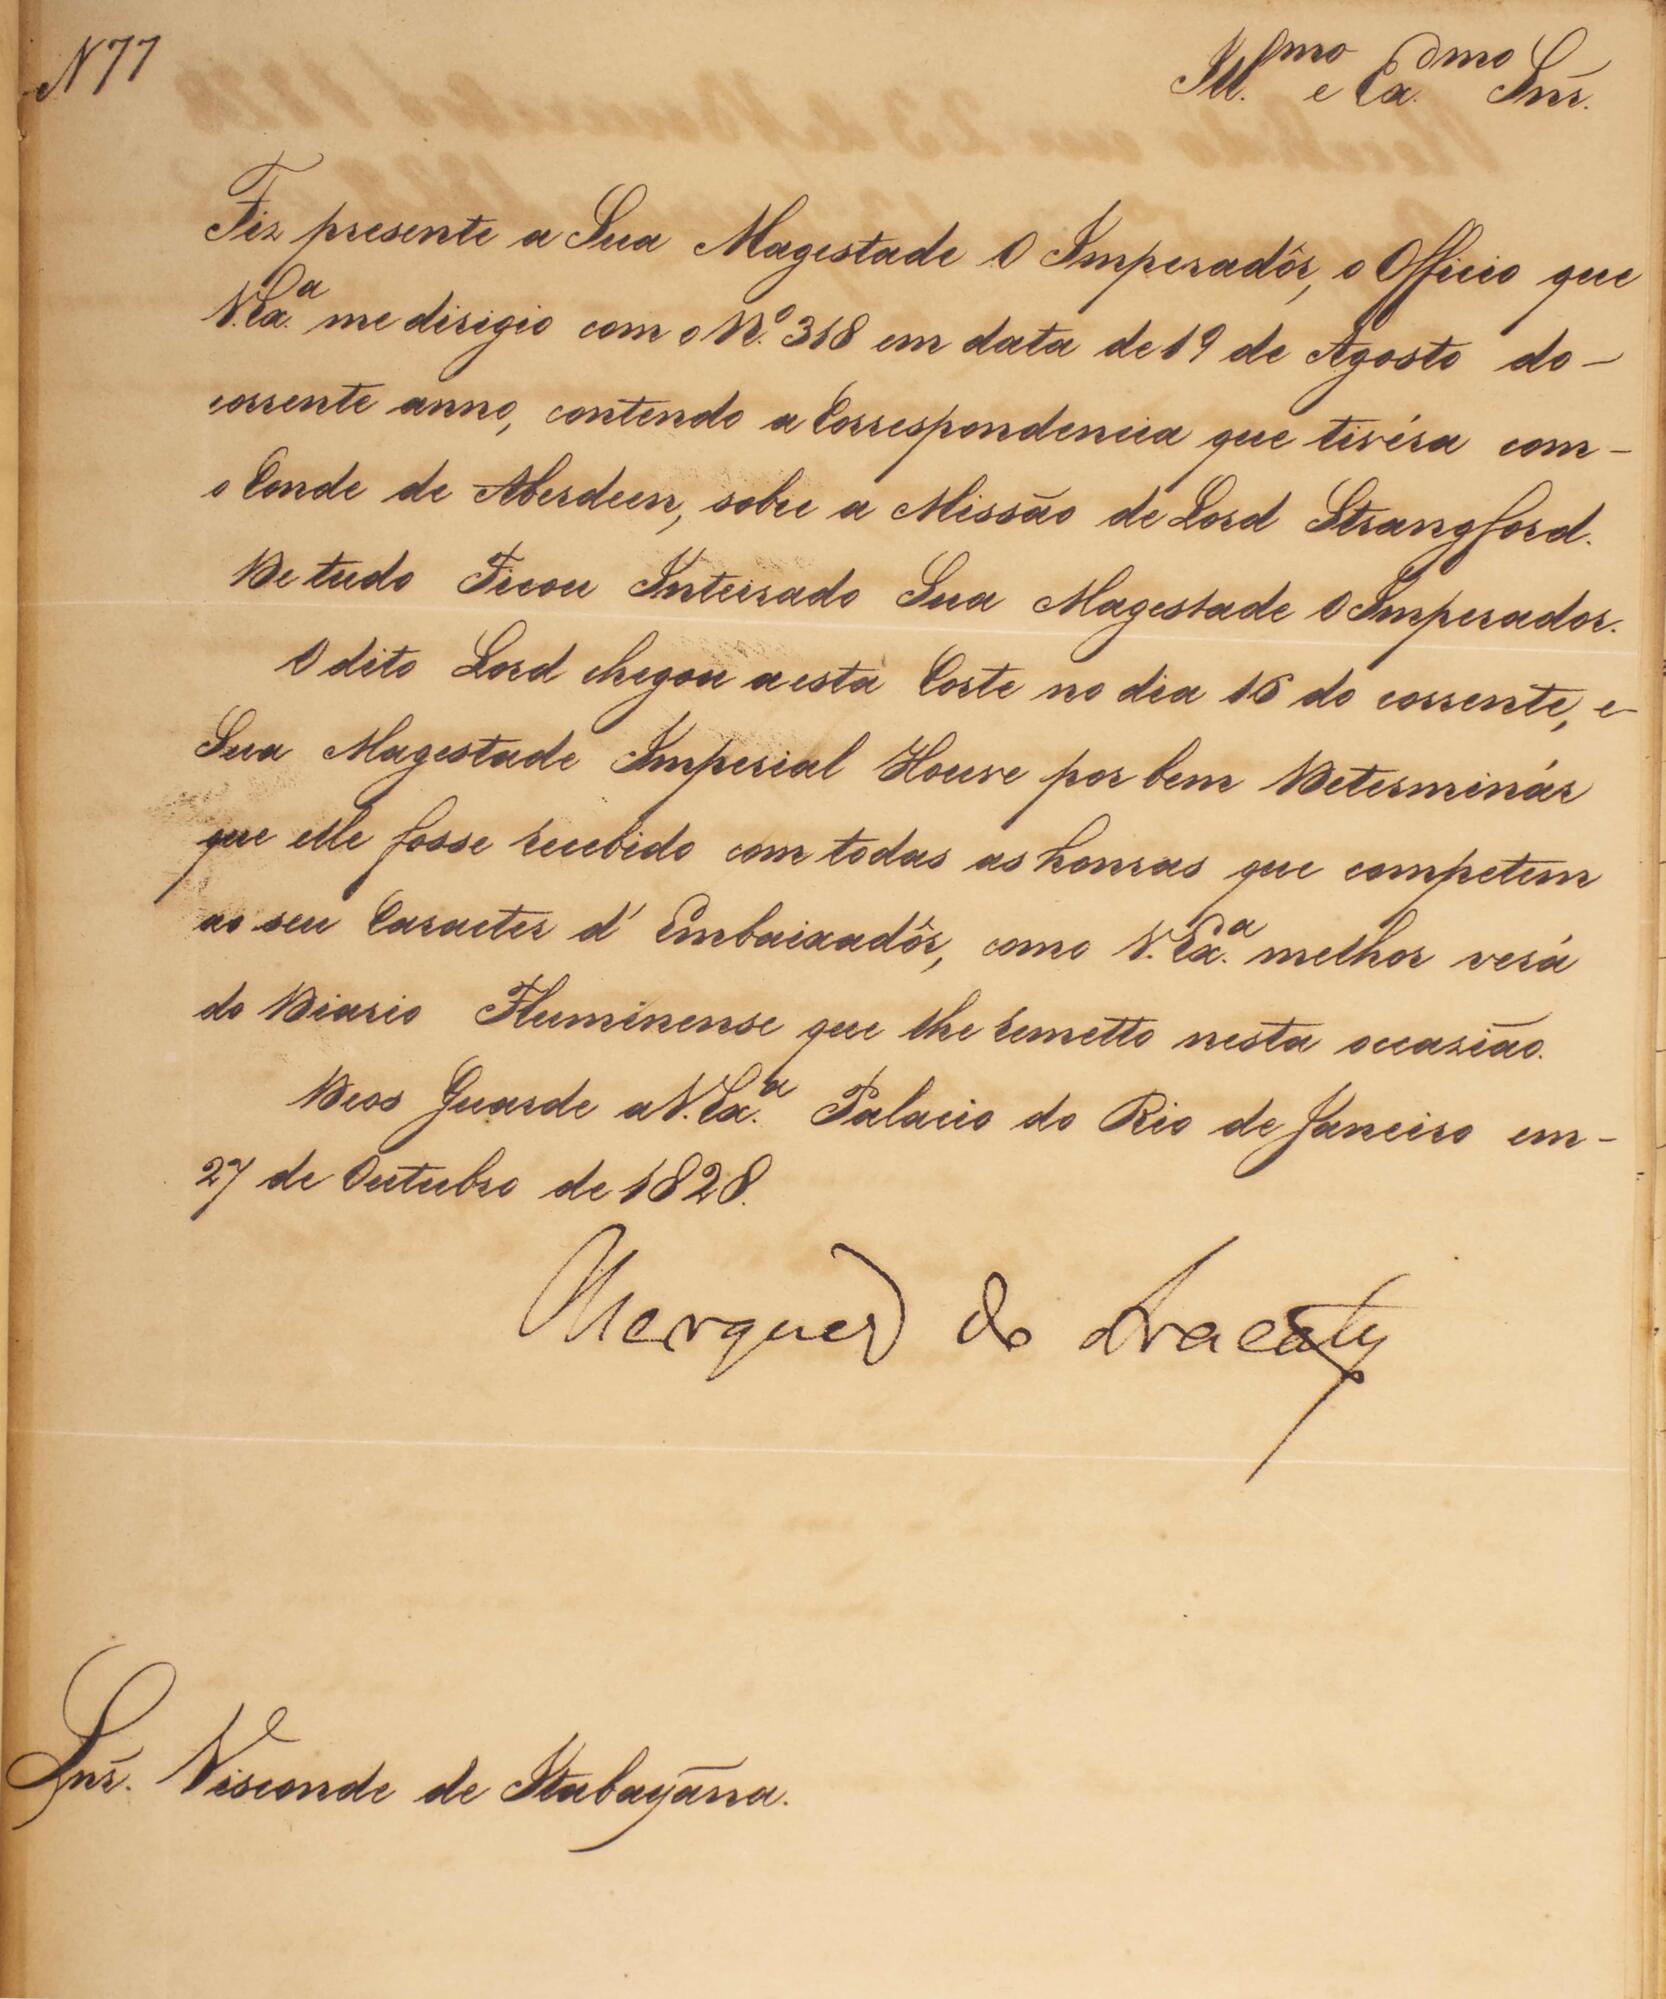 N 77
Ill.mo e Ex.mo Snr.
Fiz presente a Sua Magestade O Imperadôr, o Officio que
V.Ex.a me dirigio com o N.o 318 em data de 19 de Agosto do-
corrente anno, contendo a Correspondencia que tivéra com-
o Conde de Aberdeen, sobre a Missão de Lord Strangford.
De tudo Ficou Inteirado Sua Magestade O Imperador.
O dito Lord chegou a esta Corte no dia 16 do corrente, e-
Sua Magestade Imperial Houve por bem Determinár
que elle fosse recebido com todas as honras que competem
ao seu Caracter d' Embaixadôr, como V.Ex.a melhor verá
do Diario Fluminense que lhe remetto nesta occazião.
Deos Guarde a V.Ex.a Palacio do Rio de Janeiro em-
27 de Outubro de 1828.
Marquez de Aracaty
Snr. Visconde de Itabayãna.